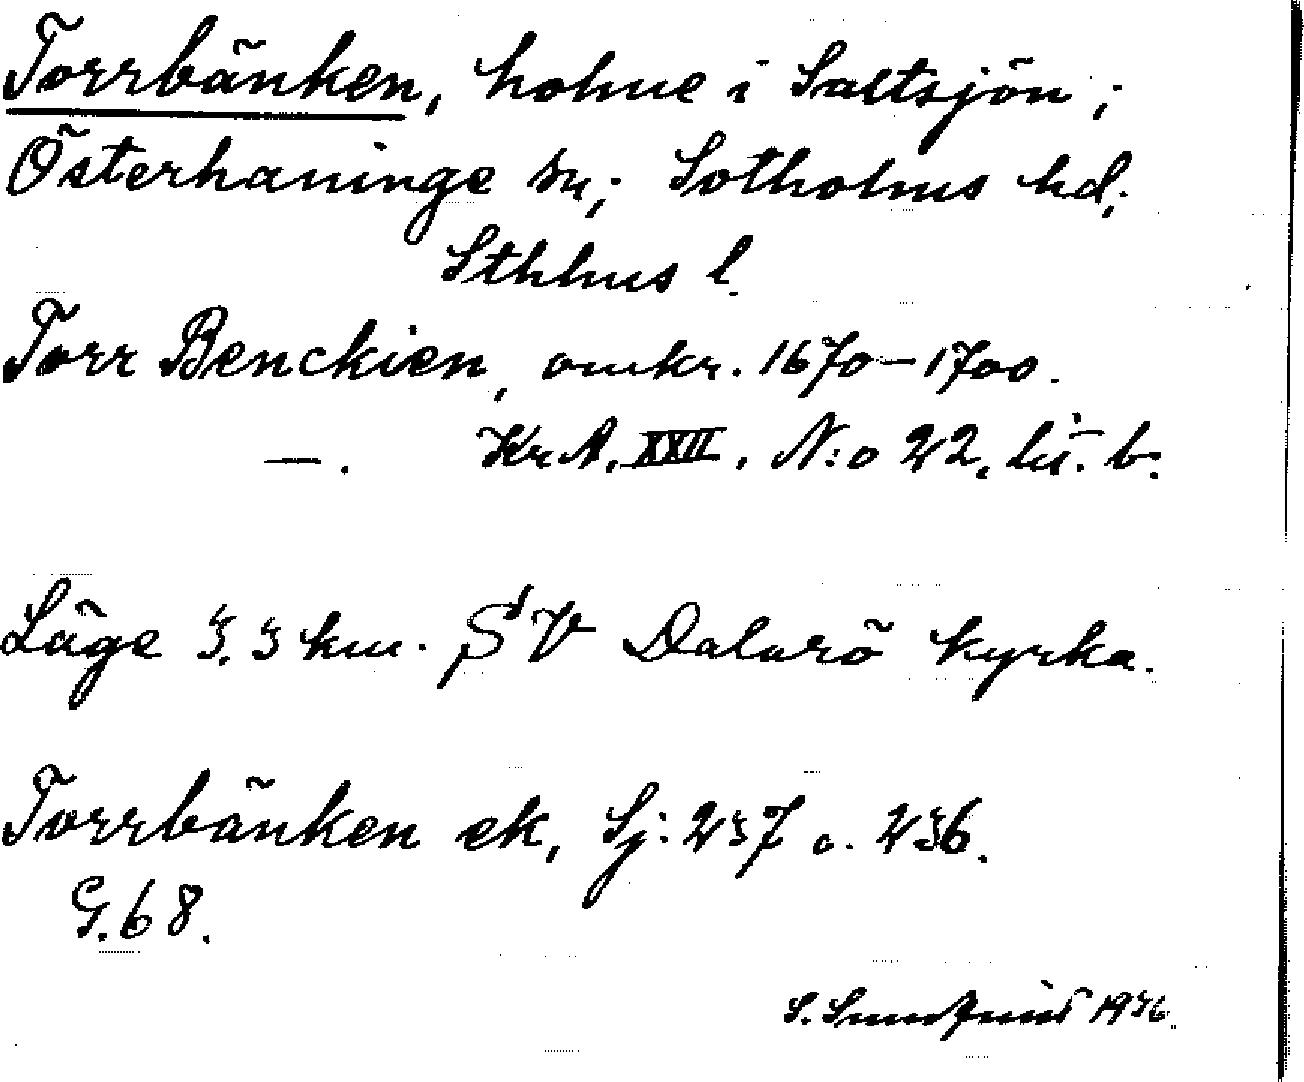 Torrbänken, holme i Saltsjön;
Österhaninge sn; Sotholms hd;
Sthlms l.
Torr Benckien, omkr. 1670-1700.
—. KrA. XXII. N:o 22. lit. b.
Läge 3.3 km. SV Dalarö kyrka.
Torrbänken ek, Sj: 237 o. 236.
G. 68.
S. 1936.